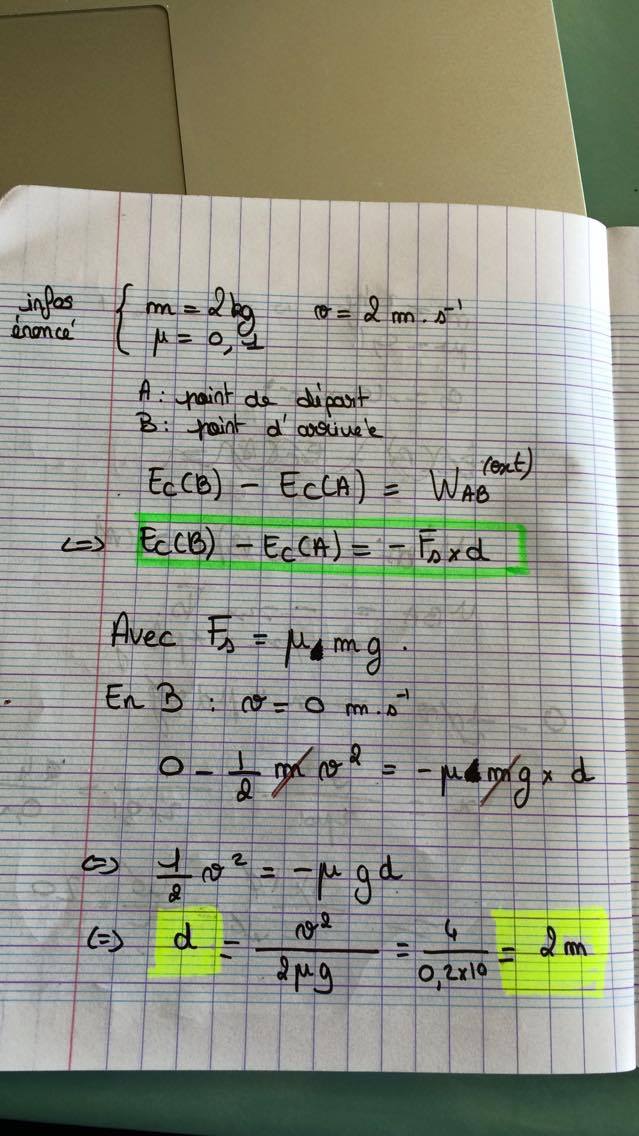 infos énoncé { m = 2 kg v = 2 m.s⁻¹
μ = 0,1
A : point de départ
B : point d'arrivée
Ec(B) - Ec(A) = W_AB^(ext)
<=> Ec(B) - Ec(A) = - Fs x d
Avec Fs = μ mg.
En B : v = 0 m.s⁻¹
0 - 1/2 m v² = - μ mg x d
<=> 1/2 v² = - μ g d
<=> d = v²/2μg = 4/0,2x10 = 2m